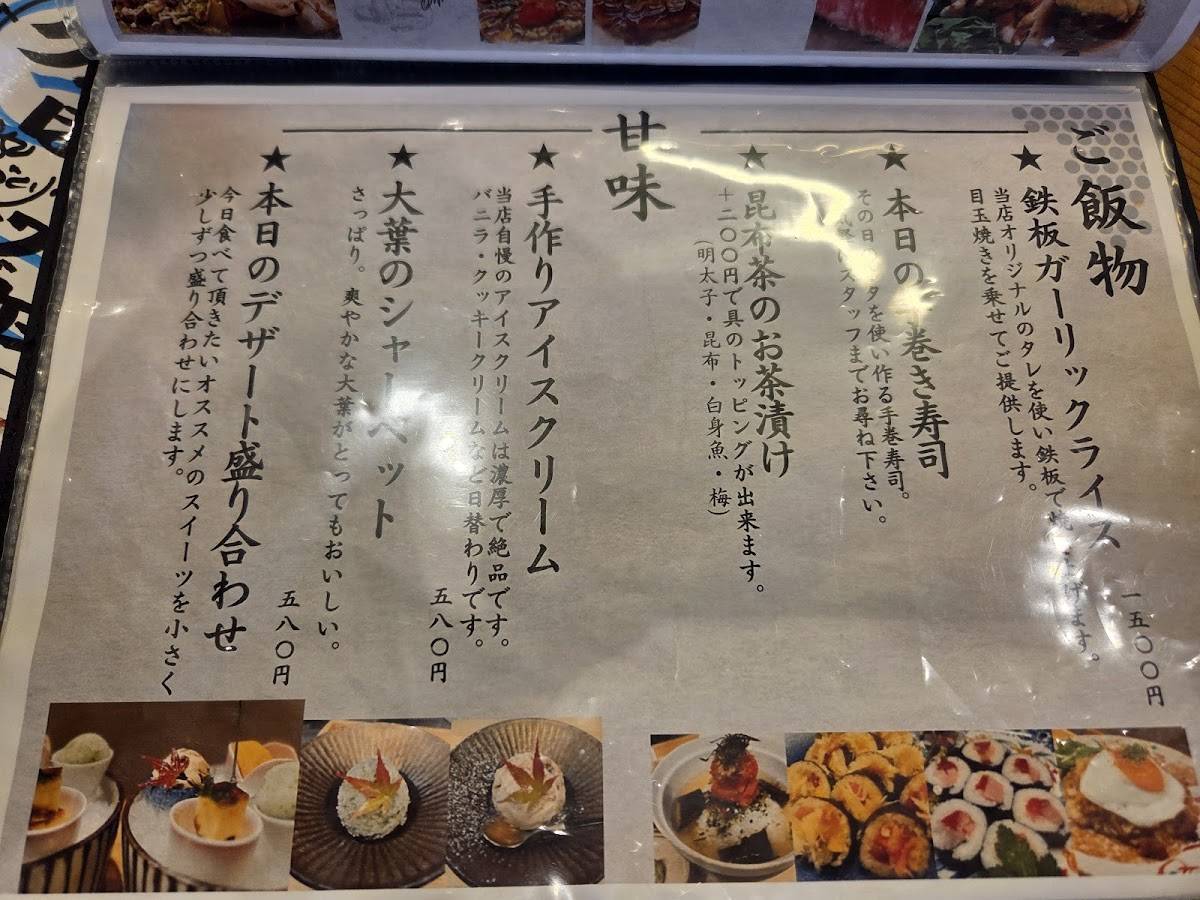 ご飯物
★鉄板ガーリックライス 一五〇〇円
当店オリジナルのタレを使い鉄板で焼げます。
目玉焼きを乗せてご提供します。
★本日の巻き寿司
その日のを使い作る手巻寿司。
スタッフまでお尋ね下さい。
★昆布茶のお茶漬け
十二〇〇円で具のトッピングが出来ます。
(明太子・昆布・白身魚・梅)
甘味
★手作りアイスクリーム 五八〇円
当店自慢のアイスクリームは濃厚で絶品です。
バニラ・クッキークリームなど日替わりです。
★大葉のシャーベット 五八〇円
さっぱり。爽やかな大葉がとってもおいしい。
★本日のデザート盛り合わせ
今日食べて頂きたいオススメのスイーツを小さく
少しずつ盛り合わせにします。